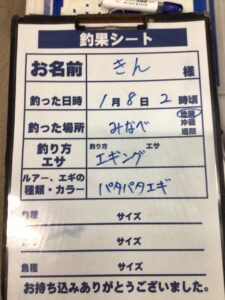 釣果シート
お名前 きん 様
釣った日時 1月8日2時頃
釣った場所 みなべ 地磯 沖磯 堤防
釣り方 エサ 釣り方 エギング エサ
ルアー、エギの種類・カラー パタパタエギ
魚種 サイズ
魚種 サイズ
魚種 サイズ
お持ち込みありがとうございました。